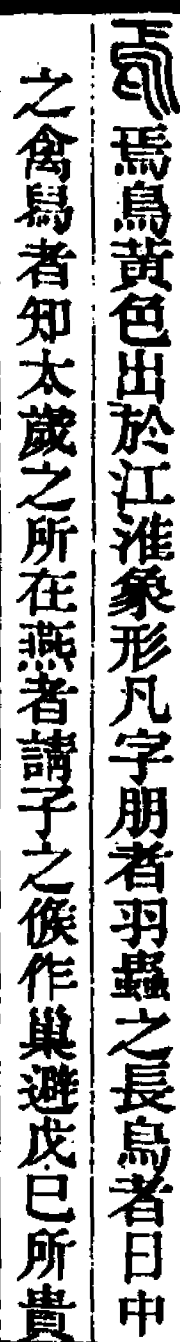 焉焉鳥黃色出於江淮象形凡字朋者羽蟲之長烏者日中
之禽舄者知太歲之所在燕者請子之候作巢避戊巳所貴